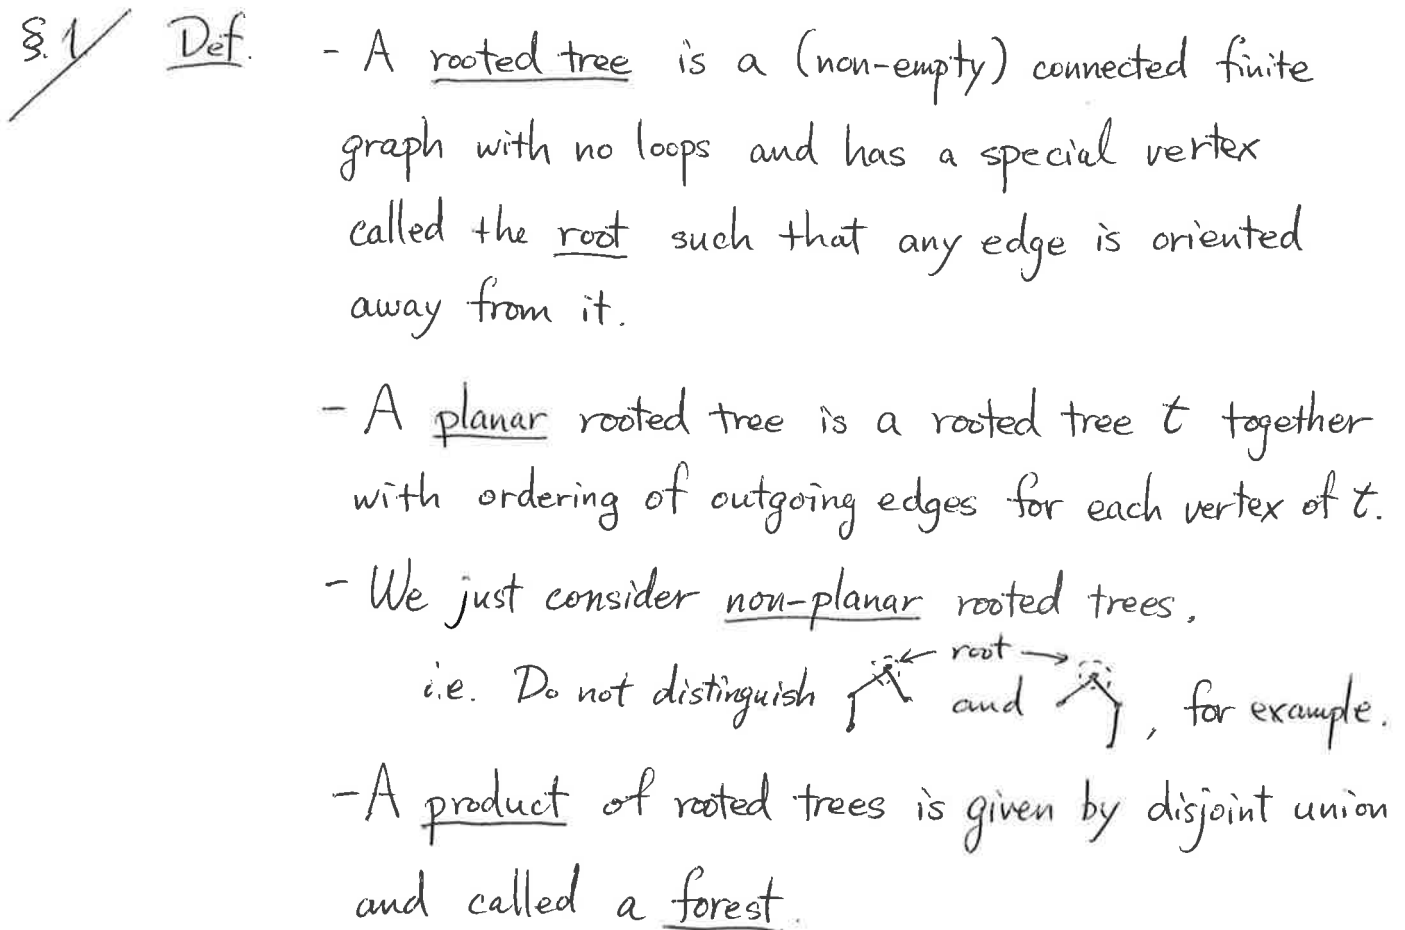 §.1/ Def. - A rooted tree is a (non-empty) connected finite
graph with no loops and has a special vertex
called the root such that any edge is oriented
away from it.
- A planar rooted tree is a rooted tree t together
with ordering of outgoing edges for each vertex of t.
- We just consider non-planar rooted trees.
← root →
i.e. Do not distinguish and , for example.
- A product of rooted trees is given by disjoint union
and called a forest.